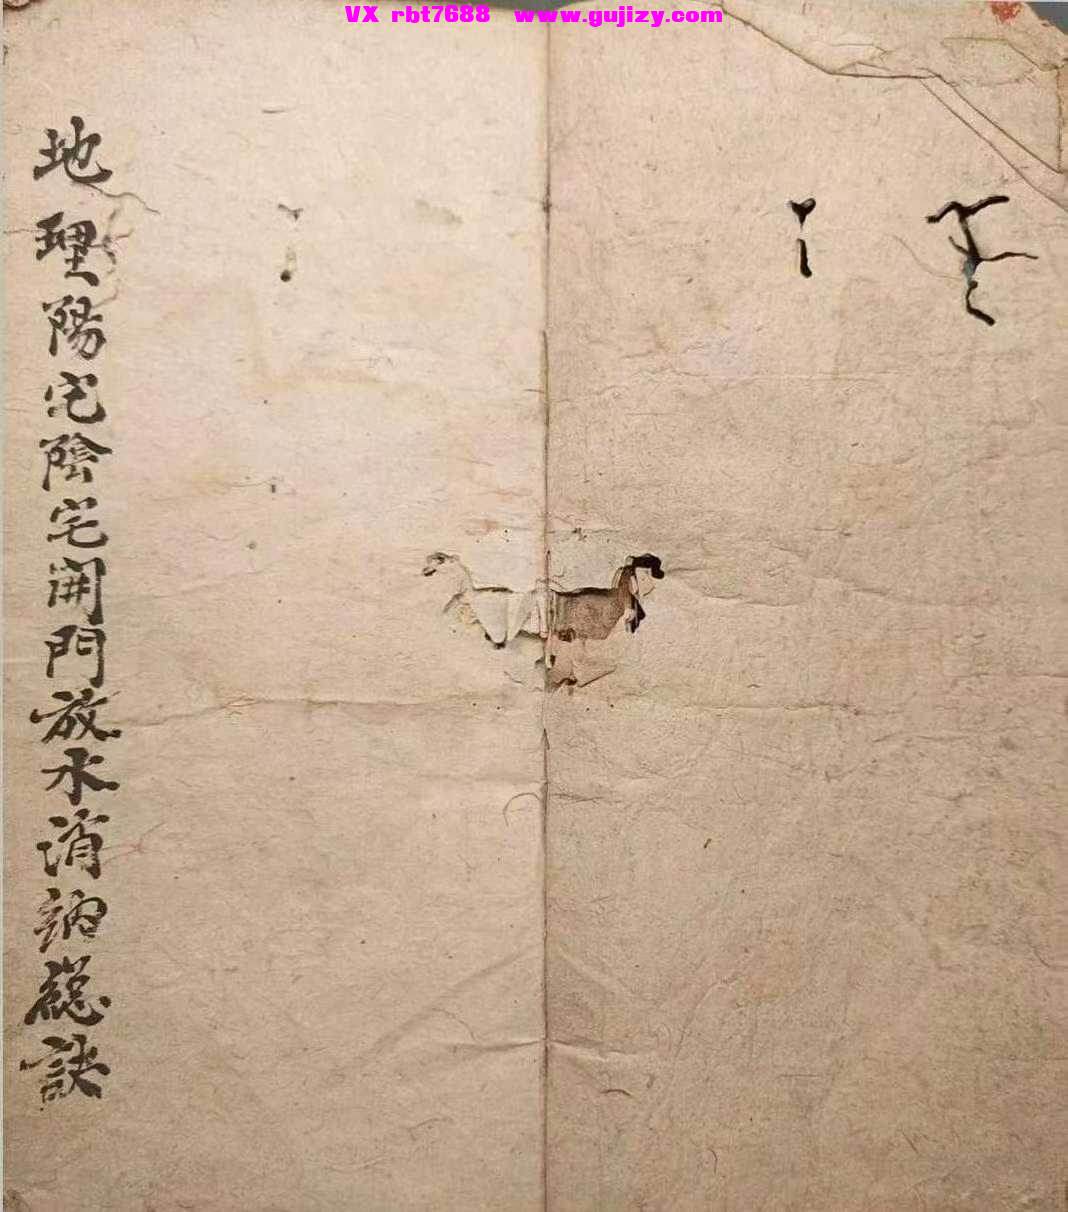 VX rbt7688 www.gujizy.com
地理陽宅陰宅開門放水消納總訣